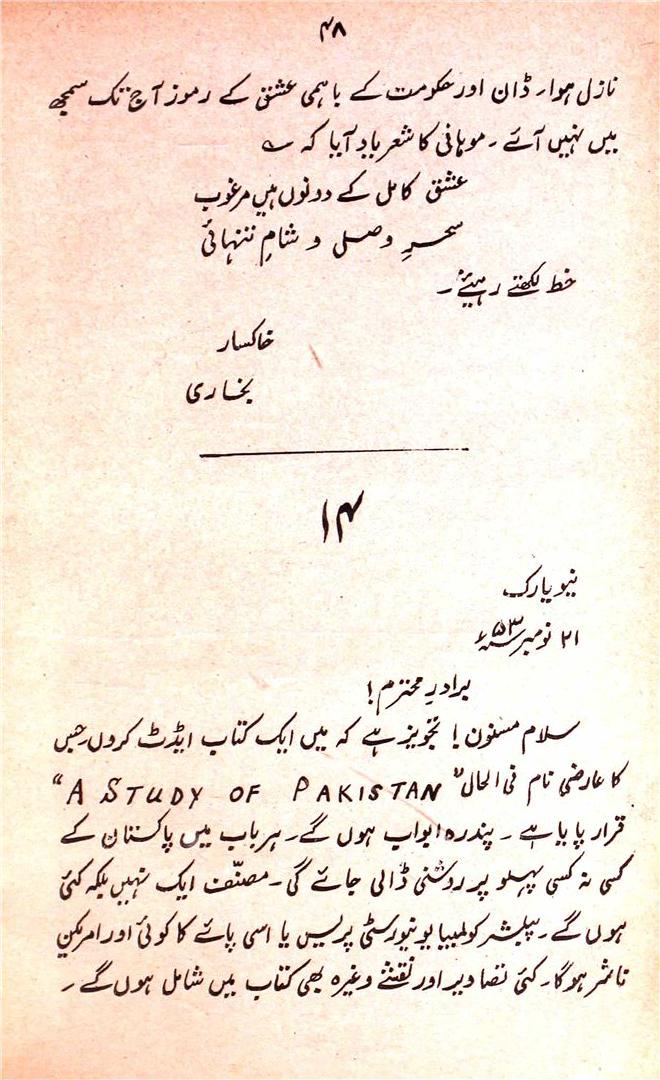 ۴۸
نازل ہوا۔ ڈان اور حکومت کے باہمی عشق کے رموز آج تک سمجھ
میں نہیں آئے ۔ موہانی کا شعر یاد آیا کہ ؎
عشق کامل کے دونوں ہیں مرغوب
سحرِ وصل و شامِ تنہائی
خط لکھتے رہیئے ۔
خاکسار
بخاری
۱۴
نیویارک
۲۱ نومبر ۵۳ء
برادرِ محترم!
سلام مسنون! تجویز ہے کہ میں ایک کتاب ایڈٹ کروں جس
کا عارضی نام فی الحال "A STUDY OF PAKISTAN"
قرار پایا ہے ۔ پندرہ ابواب ہوں گے۔ ہر باب میں پاکستان کے
کسی نہ کسی پہلو پر روشنی ڈالی جائے گی۔ مصنّف ایک نہیں بلکہ کئی
ہوں گے۔ پبلیشر کولمبیا یونیورسٹی پریس یا اسی پائے کا کوئی اور امریکن
ناشر ہوگا۔ کئی تصاویر اور نقشے وغیرہ بھی کتاب میں شامل ہوں گے ۔